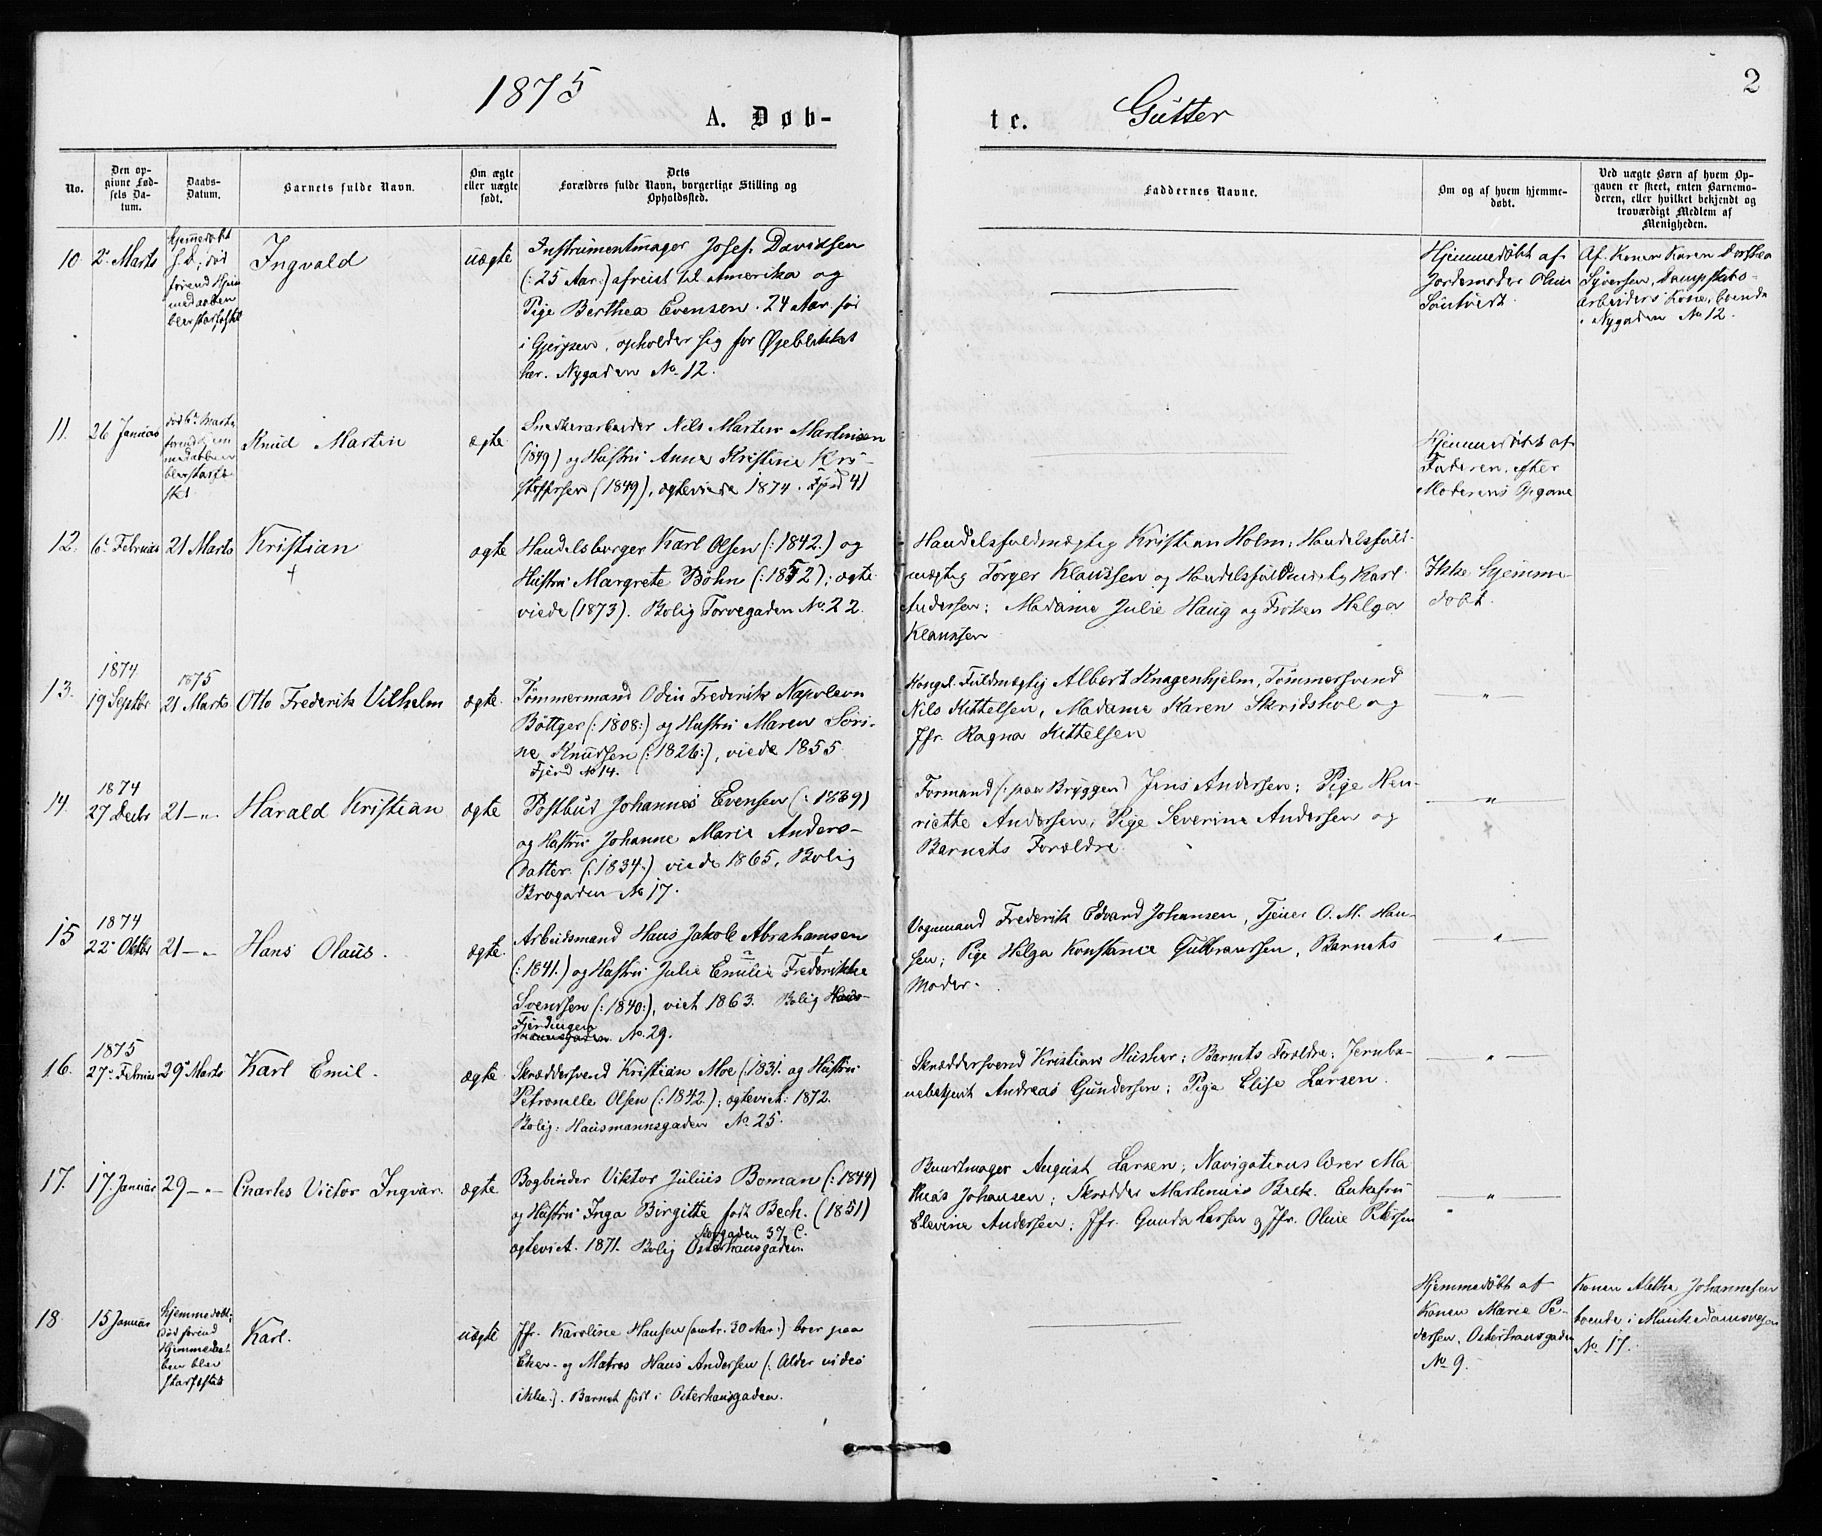 1875
A. Døb-
te.
Gutter
2
No.
Den op-
givne Fød-
sels Da-
tum.
Daabs-
Datum.
Barnets fulde Navn.
Om ægte
eller uægte
født.
Dets
Forældres fulde Navn, borgerlige Stilling og
Opholdssted.
Faddernes Navne.
Om og af hvem hjemme-
døbt.
Ved uægte Børn af hvem Op-
gaven er skeet, enten Barnemo-
deren, eller hvilket bekjendt og
troværdigt Medlem af
Menigheden.
10
2 Marts
hjemmedøbt
s. D.; død
førend Hjem
medaaben
blev stadfæstet
Ingvald
uægte
Instrumentmager Josef Davidsen
(: 25 Aar:) afreist til Amerika og
Pige Berthea Evensen. 24 Aar før
i Gjerpen, opholder sig for Øjeblikket
her. Nygaden No 12.
Hjemmedøbt af
Jordemoder Oline
Af Konen Karen Dorthea
Syversen, Dampskibs-
arbeiders Kone, boende
i Nygaden No 12.
11.
26 Januar
død 6 Marts
førend Hjem
medaaben
blev stadfæ-
stet
Knud Martin
ægte
Snedkerarbeider Nils Martin Martinsen
(1849) og Hustru Anna Kristine Kri-
stoffersen (1849), ægteviede 1874. Fjerd 41
Hjemmedøbt af
Faderen, efter
Moderens Opgave
12.
6 Februar
21 Marts
Kristian
+
ægte
Handelsborger Karl Olsen (: 1842:) og
Hustru Margrete Böhn (: 1852); ægte-
viede (1873). Bolig Torvegaden No. 22.
Handelsfuldmægtig Kristian Holm, Handelsfuld-
mægtig Torger Klaussen og Handelsfuldmægtig Karl
Andersen; Madame Julie Haug og Frøken Helga
Klaussen
Ikke hjemme-
døbt.
13.
1874
19 Septbr
1875
21 Marts
Otto Frederik Vilhelm
ægte.
Tømmermand Odin Frederik Napoleon
Böttger (: 1808:) og Hustru Maren Søri-
ne, Knudsen (: 1826:), viede 1855
Fjerd No 14.
Kongel. Fuldmægtig Albert Knagenhjelm, Tømmersvend
Nils Kittelsen, Madame Karen Skridshol og
Jfr. Ragna Kittelsen
— „ —
14.
1874
27 Decbr
21 — „ —
Harald Kristian
ægte
Postbud Johannes Evensen (: 1839)
og Hustru Johanne Marie Anders-
datter (: 1834:) viede 1865, Bolig
Brogaden No 17.
Formand (: paa Bryggen) Jens Andersen; Pige Hen-
riette Andersen, Pige Severine Andersen og
Barnets Forældre
— „ —
15
1874
22 Oktbr
21 — „ —
Hans Olaus.
ægte.
Arbeidsmand Hans Jakob Abrahamsen
(: 1841.) og Hustru Julie Emilie Frederikke
Svendsen (: 1840:), viet 1863. Bolig Haus-
Fjerdingen
mannsgaden. No. 29.
Vognmand Frederik Edvard Johansen, Tjener O. M. Han-
sen; Pige Helga Konstance Gulbranssen, Barnets
Moder.
— „ —
16.
1875
27 Februar
29 Marts
Karl Emil.
ægte
Skræddersvend Kristian Moe (: 1831. og Hustru
Petronelle Olsen (: 1842.); ægteviet: 1872.
Bolig: Hausmannsgaden No. 25.
Skræddersvend Kristian Husher; Barnets Forældre; Jernba-
nebetjent Andreas Gundersen; Pige Elise Larsen.
— „ —
17.
17. Januar
29 — „ —
Charles Victor Ingvar.
ægte
Bogbinder Viktor Julius Boman (: 1844)
og Hustru Inga Birgitte født Bech. (1851)
Storgaden 37 C.
ægteviet. 1871. Bolig Osterhausgaden.
Buntmager August Larsen; Navigationslærer Ma-
thias Johansen; Skrædder Martinius Brek. Enkefru
Elevine Andersen; Jfr. Gunda Larsen og Jfr. Oline Petersen
— „ —
18
15 Januar
hjemmedøbt;
død førend
Hjemmedaa-
ben blev
stadfæstet
Karl.
uægte
Jfr. Karoline Hansen (omtr. 30 Aar:) boer paa
Eker- og Matros Hans Andersen (: Alder vides
ikke.). Barnet født i Osterhausgaden.
Hjemmedøbt af
Konen Marie Pe-
dersen, Osterhausgaden
No 9.
Konen Alethe Johannesen
boende i Munkedamsvejen
No 17.